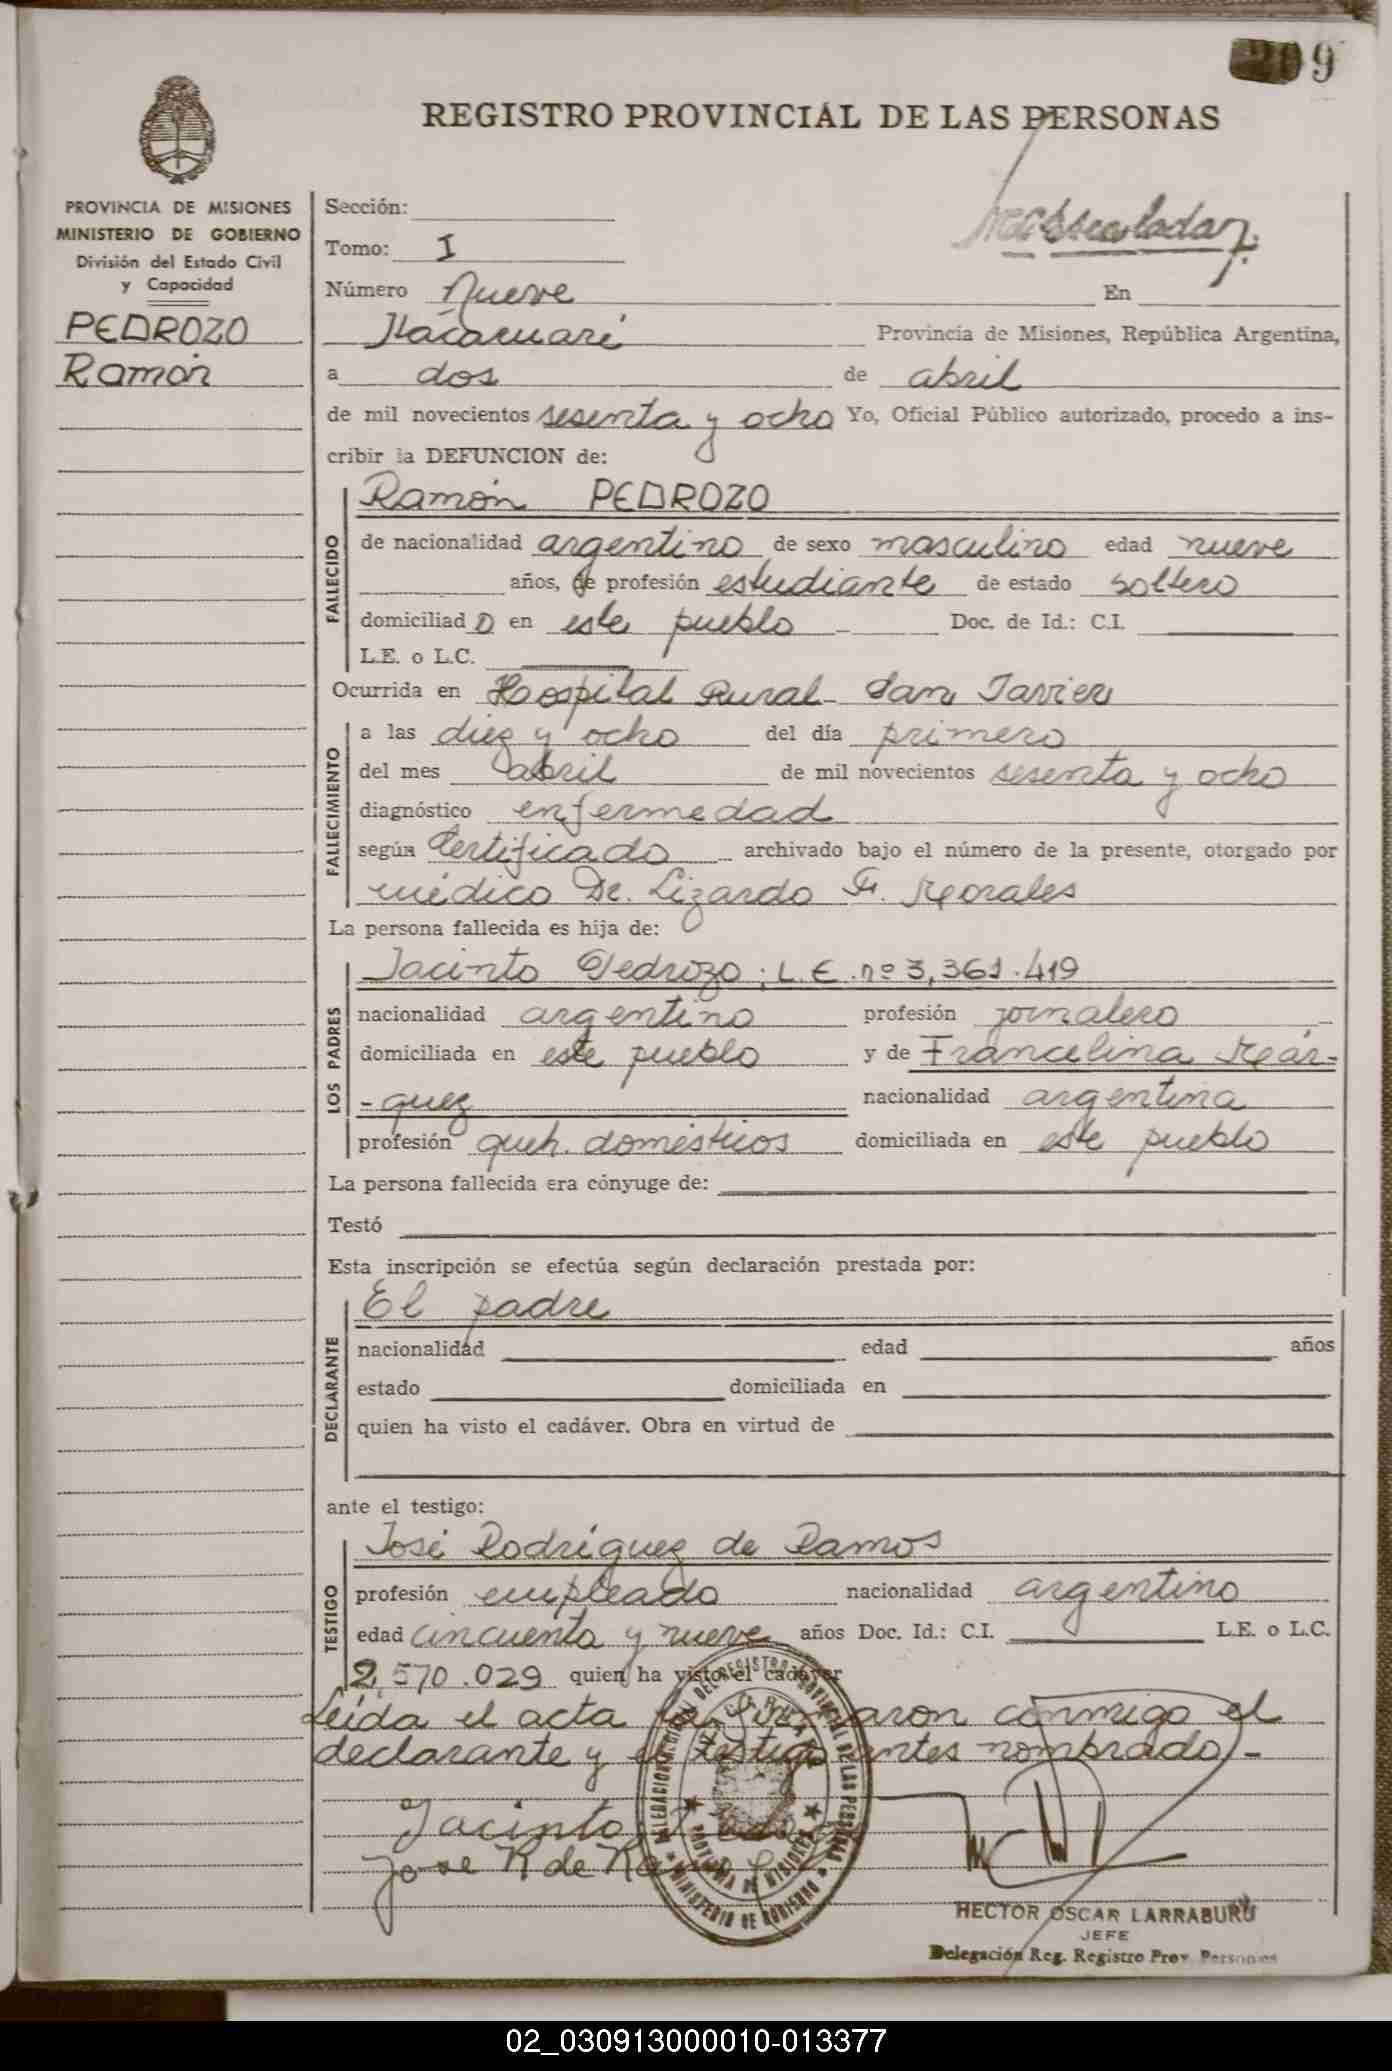 9
REGISTRO PROVINCIAL DE LAS PERSONAS
PROVINCIA DE MISIONES
MINISTERIO DE GOBIERNO
División del Estado Civil
y Capacidad
PEDROZO
Ramón
Sección:
Tomo: I
Número nueve En
Itacaruaré Provincia de Misiones, República Argentina,
a dos de abril
de mil novecientos sesenta y ocho Yo, Oficial Público autorizado, procedo a ins-
cribir la DEFUNCION de:
FALLECIDO
Ramón PEDROZO
de nacionalidad argentino de sexo masculino edad nueve
años, de profesión estudiante de estado soltero
domiciliado en este pueblo - Doc. de Id.: C.I.
L.E. o L.C.
Ocurrida en Hospital Rural - San Javier
FALLECIMIENTO
a las diez y ocho del día primero
del mes abril de mil novecientos sesenta y ocho
diagnóstico enfermedad
según Certificado archivado bajo el número de la presente, otorgado por
médico Dr. Lizardo F. Morales
La persona fallecida es hija de:
LOS PADRES
Jacinto Pedrozo; L.E. nº 3,361.419
nacionalidad argentino profesión jornalero
domiciliada en este pueblo y de Francelina Már-
-quez nacionalidad argentina
profesión queh. domésticos domiciliada en este pueblo
La persona fallecida era cónyuge de:
Testó
Esta inscripción se efectúa según declaración prestada por:
DECLARANTE
El padre
nacionalidad edad años
estado domiciliada en
quien ha visto el cadáver. Obra en virtud de
ante el testigo:
TESTIGO
José Rodríguez de Ramos
profesión empleado nacionalidad argentino
edad cincuenta y nueve años Doc. Id.: C.I. L.E. o L.C.
2,570.029 quien ha visto el cadáver
Leída el acta la firmaron conmigo el
declarante y el testigo antes nombrado.-
Jacinto
Jose R de Ramos
PROVINCIA DE MISIONES
MINISTERIO DE GOBIERNO
HECTOR OSCAR LARRABURU
JEFE
Delegación Reg. Registro Prov. Personas
02_030913000010-013377